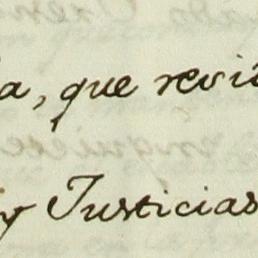 a, que revi
y Justicias